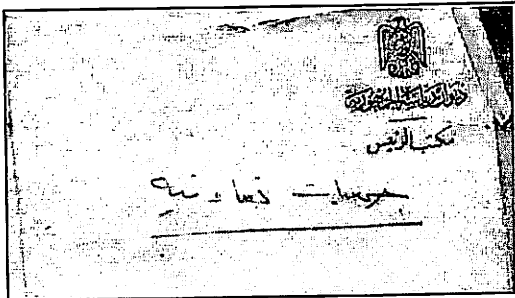 ديوان رئاسة الجمهورية
مكتب الرئيس
جمعيات تعاونيه